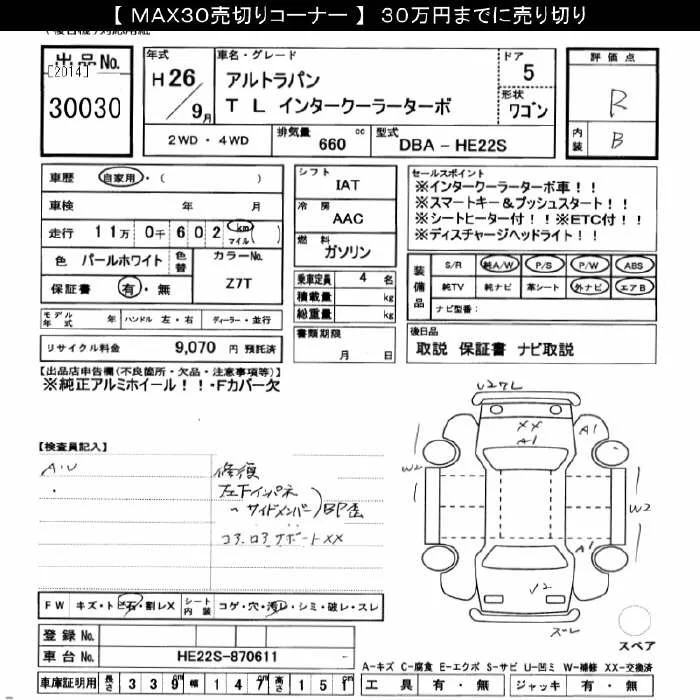 【 MAX30売切りコーナー 】 30万円までに売り切り
出品No.
[2014]
30030
年式
H26/9月
車名・グレード
アルトラパン
T L インタークーラーターボ
ドア
5
形状
ワゴン
2WD ・ 4WD
排気量 660 cc
型式 DBA - HE22S
評価点
R
内装 B
車歴 自家用・( )
車検 年 月
走行 11万 0千 602 km マイル( )
色 パールホワイト 色替 カラーNo. Z7T
保証書 有・無
モデル年式 年 ハンドル 左・右 ディーラー・並行
リサイクル料金 9,070 円 預託済
シフト IAT
冷房 AAC
燃料 ガソリン
乗車定員 4 名
積載量 kg
総重量 kg
書類期限
月 日
セールスポイント
※インタークーラーターボ車!!
※スマートキー&プッシュスタート!!
※シートヒーター付!!※ETC付!!
※ディスチャージヘッドライト!!
装備品
S/R 純A/W P/S P/W ABS
純TV 純ナビ 革シート 外ナビ エアB
ナビ型番:
後日品
取説 保証書 ナビ取説
【出品店申告欄(不良箇所・欠品・注意事項等)】
※純正アルミホイール!!・Fカバー欠
【検査員記入】
A・U
修復
左下インパネ
〜サイドメンバー)BP歪
コア、ロアサポートXX
U2スレ
XX
A1
A1
W2
W2
A1
U2
スレ
スペア
FW キズ・トビ石・割レX
シート内装 コゲ・穴・汚レ・シミ・破レ・スレ
登録No.
車台No. HE22S-870611
車庫証明用 長さ 339 cm 幅 147 cm 高さ 151 cm
A-キズ C-腐食 E-エクボ S-サビ U-凹ミ W-補修 XX-交換済
工具 有・無 ジャッキ 有・無